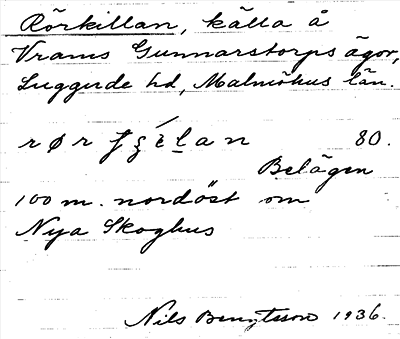 Rörkillan, källa å
Vrams Gunnarstorps ägor,
Luggude hd, Malmöhus län.
80.
Belägen
100 m. nordöst om
Nya Skoghus
Nils Bengtsson 1936.